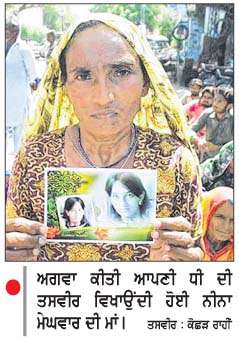 ਅਗਵਾ ਕੀਤੀ ਆਪਣੀ ਧੀ ਦੀ
ਤਸਵੀਰ ਵਿਖਾਉਂਦੀ ਹੋਈ ਨੀਨਾ
ਮੇਘਵਾਰ ਦੀ ਮਾਂ। ਤਸਵੀਰ : ਕੋਛੜ ਰਾਹੀਂ